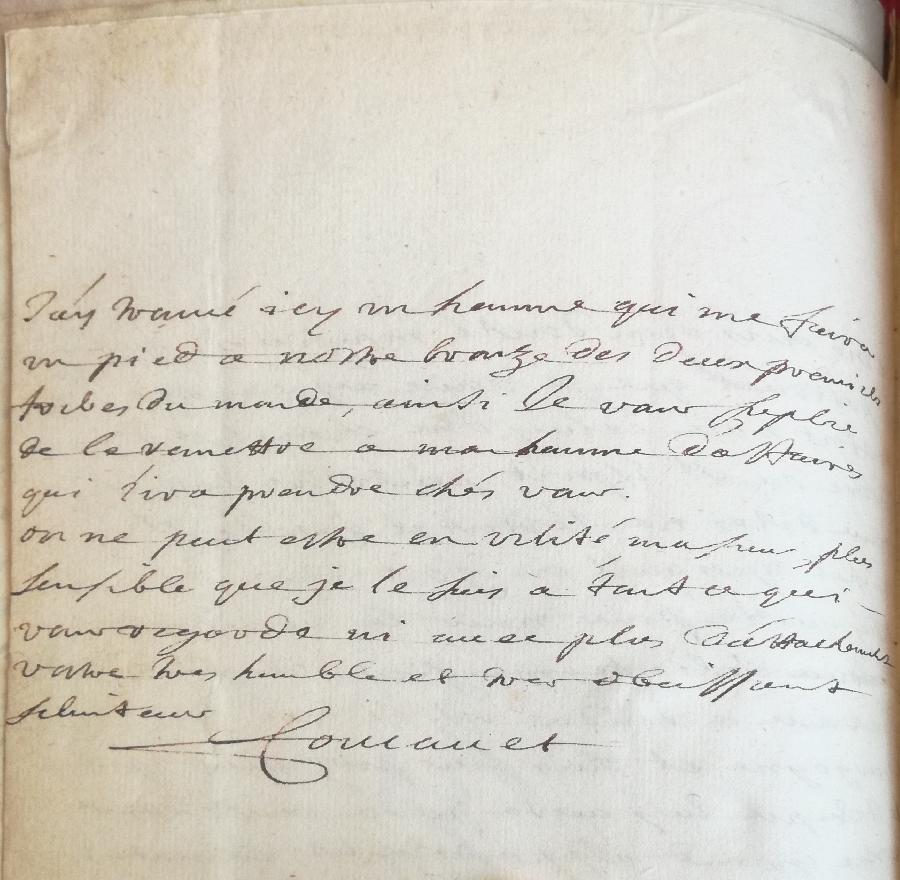 J'ay trouvé icy un homme qui me faira
un pied a nostre bronze des deux premiers
du monde, ainsi Je vous suplie
de le remettre a mon homme d'affaires
qui l'ira prendre chés vous.
on ne peut estre en vérité monsieur plus
sensible que je le suis a tout ce qui
vous regarde ni avec plus d'attachement
vostre tres humble et tres obeissant
serviteur